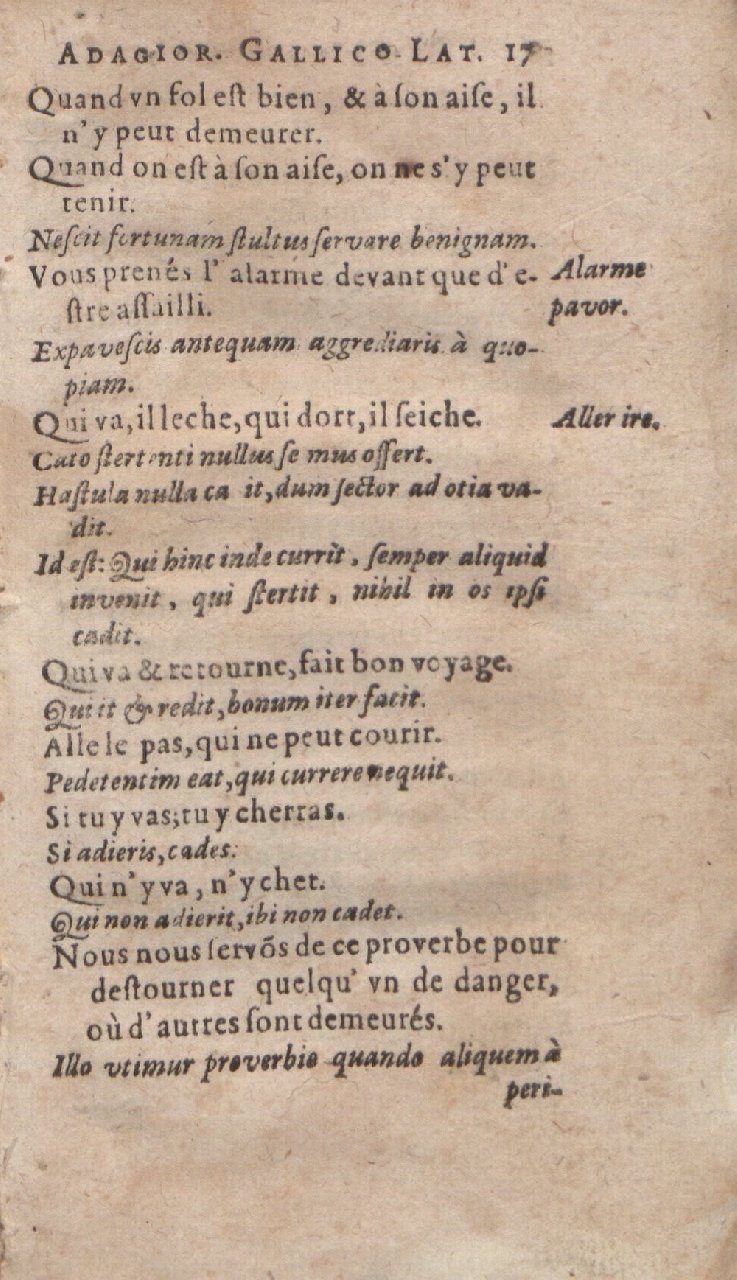 ADAGIOR. GALLICO LAT. 17
Quand vn fol eſt bien, & à ſon aiſe, il
n'y peut demeurer.
Quand on eſt à ſon aiſe, on ne s'y peut
tenir.
Neſcit fortunam ſtultus ſervare benignam.
Vous prenés l' alarme devant que d'e-
ſtre aſſailli.
Alarme
pavor.
Expaveſcis antequam aggrediaris à quo-
piam.
Qui va, il leche, qui dort, il ſeiche.
Aller ire.
Cato ſtertenti nullus ſe mus offert.
Haſtula nulla ca it, dum ſector ad otia va-
dit.
Id eſt: Qui hinc inde currit, ſemper aliquid
invenit, qui ſtertit, nihil in os ipſi
cadit.
Qui va & retourne, fait bon voyage.
Qui it & redit, bonum iter facit.
Alle le pas, qui ne peut courir.
Pedetentim eat, qui currere nequit.
Si tu y vas; tu y cherras.
Si adieris, cades.
Qui n'y va, n'y chet.
Qui non adierit, ibi non cadet.
Nous nous ſervõs de ce proverbe pour
deſtourner quelqu' vn de danger,
où d'autres ſont demeurés.
Illo vtimur proverbio quando aliquem à
peri-